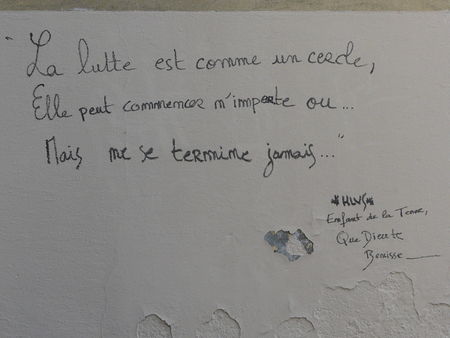 "La lutte est comme un cercle,
Elle peut commencer n'importe ou...
Mais ne se termine jamais..."
*KLVS*
Enfant de la Terre,
Que Dieu te
Benisse